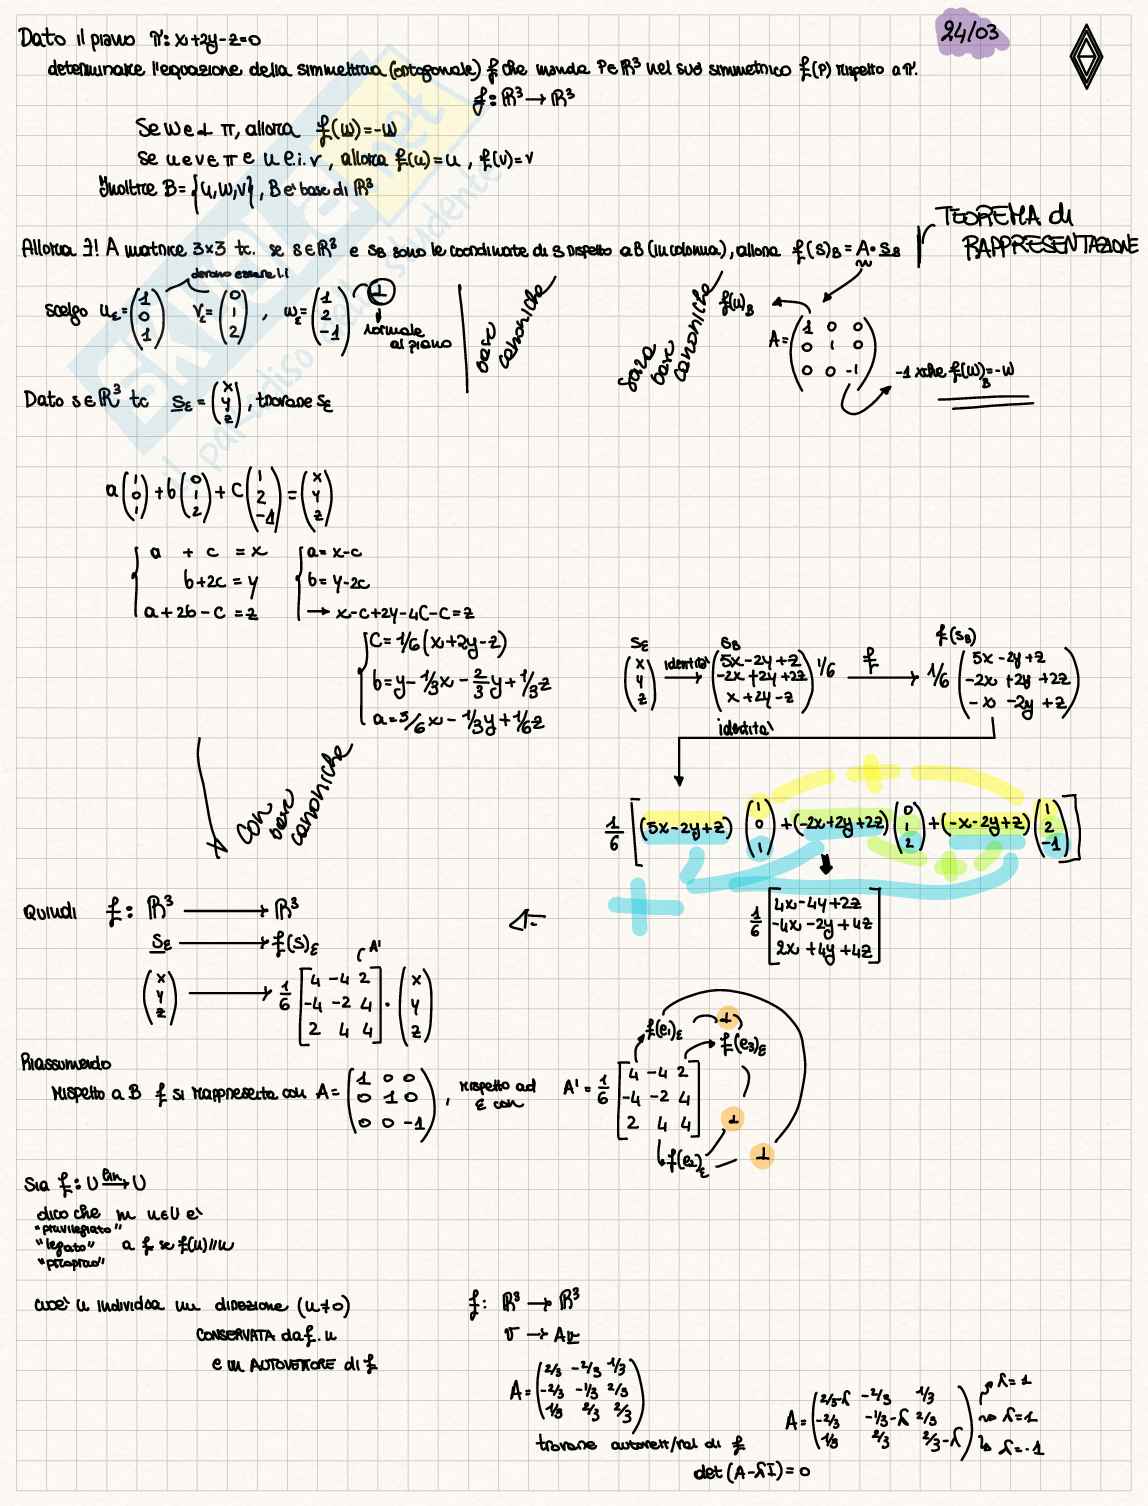 24/03
Dato il piano π: x+2y-z=0
determinare l'equazione della simmetria (ortogonale) f che manda P∈ℝ³ nel suo simmetrico f(P) rispetto a π.
f: ℝ³ → ℝ³
Se w è ⊥ π, allora f(w)=-w
se u e v ∈ π e u l.i. v, allora f(u)=u, f(v)=v
Inoltre B={u,w,v}, B è base di ℝ³
TEOREMA di
RAPPRESENTAZIONE
Allora ∃! A matrice 3×3 tc. se s∈ℝ³ e s_B sono le coordinate di s rispetto a B (in colonna), allora f(s)_B = A·s_B
devono essere l.i
scelgo u_ε=(1 0 1) v_ε=(0 1 2), w_ε=(1 2 -1) ⊥
normale
al piano
base
canoniche
senza
base
canoniche
f(u)_B
A=(1 0 0
0 1 0
0 0 -1)
-1 xche f(w)_B=-w
Dato s∈ℝ³ tc s_ε=(x y z), trovare s_ε
a(1 0 1)+b(0 1 2)+c(1 2 -1)=(x y z)
{a + c = x {a=x-c
b+2c=y b=y-2c
a+2b-c=z → x-c+2y-4c-c=z
{c=1/6(x+2y-z)
b=y-1/3x-2/3y+1/3z
a=5/6x-1/3y+1/6z
s_ε s_B f(s_B)
(x y z) identità → (5x-2y+z
-2x+2y+2z
x+2y-z) 1/6 f → 1/6 (5x-2y+z
-2x+2y+2z
-x-2y+z)
identità
con
base
canoniche
1/6 [(5x-2y+z) (1 0 1) +(-2x+2y+2z) (0 1 2) +(-x-2y+z) (1 2 -1)]
1/6 [4x-4y+2z
-4x-2y+4z
2x+4y+4z]
Quindi f: ℝ³ → ℝ³
s_ε → f(s)_ε
A'
(x y z) → 1/6 [4 -4 2
-4 -2 4
2 4 4] · (x y z)
Riassumendo
rispetto a B f si rappresenta con A=(1 0 0
0 1 0
0 0 -1), rispetto ad
ε con
f(e1)_ε ⊥
f(e3)_ε
A'=1/6 [4 -4 2
-4 -2 4
2 4 4]
⊥
f(e2)_ε ⊥
Sia f: U lin→ U
dico che un u∈U è
"privilegiato"
"legato" a f se f(u)//u
"proprio"
cioè u individua una direzione (u≠0)
CONSERVATA da f. u
è un AUTOVETTORE di f
f: ℝ³ → ℝ³
v → Av
A=(2/3 -2/3 1/3
-2/3 -1/3 2/3
1/3 2/3 2/3)
trovare autovett/val di f
det (A-λI)=0
A=(2/3-λ -2/3 1/3
-2/3 -1/3-λ 2/3
1/3 2/3 2/3-λ)
λ=1
λ=1
λ=-1